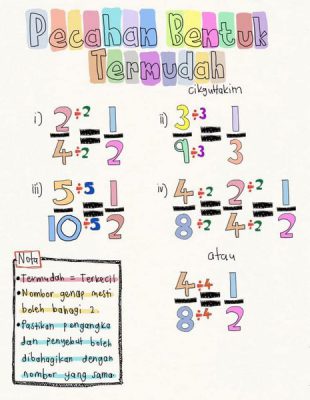 Pecahan Bentuk
Termudah
cikguHakim
i) 2 ÷2 = 1
4 ÷2 2
ii) 3 ÷3 = 1
9 ÷3 3
iii) 5 ÷5 = 1
10 ÷5 2
iv) 4 ÷2 = 2 ÷2 = 1
8 ÷2 4 ÷2 2
atau
4 ÷4 = 1
8 ÷4 2
Nota
• Termudah = Terkecil
• Nombor genap mesti
boleh bahagi 2
• Pastikan pengangka
dan penyebut boleh
dibahagikan dengan
nombor yang sama